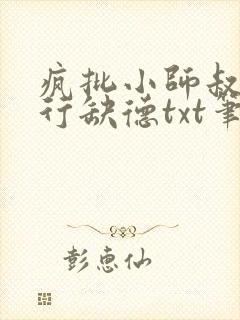 疯批小师叔
行缺德txt筆
彭惠仙